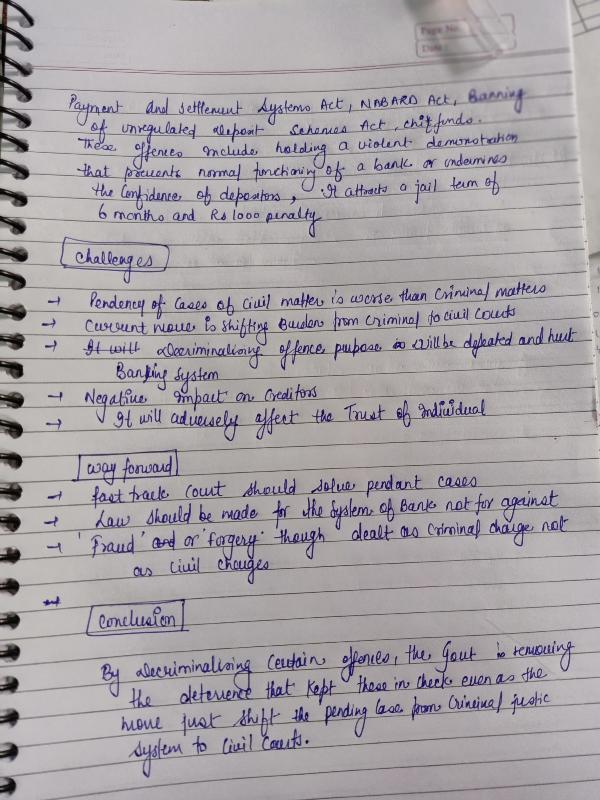 Page No.
Date
Payment and settlement systems Act, NABARD Act, Banning
of unregulated Deposit Schemes Act, chit funds.
These offences include holding a violent demonstration
that prevents normal functioning of a bank or undermines
the Confidence of depositors, It attracts a jail term of
6 months and Rs 1000 penalty
Challenges
→ Pendency of Cases of Civil matter is worse than Criminal matters
→ Current move is shifting Burden from Criminal to civil Courts
→ It will Decriminalising offence purpose will be defeated and hurt
Banking System
→ Negative impact on Creditors
→ It will adversely affect the Trust of individual
way forward
→ fast track Court should solve pendant cases
→ Law should be made for the System of Bank not for against
→ 'Fraud' and or 'forgery' though dealt as Criminal charge not
as Civil charges
Conclusion
By Decriminalising Certain offences, the Govt is removing
the deterence that kept these in check even as the
move just shift the pending Case from Criminal justic
System to Civil Courts.